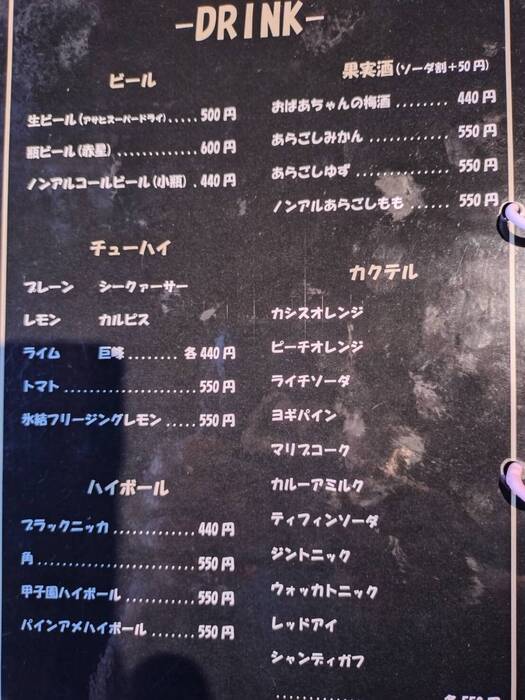 -DRINK-
ビール
生ビール(アサヒスーパードライ).....500円
瓶ビール(赤星)..............600円
ノンアルコールビール(小瓶).440円
チューハイ
プレーン シークァーサー
レモン カルピス
ライム 巨峰........各440円
トマト......................550円
氷結フリージングレモン.....550円
ハイボール
ブラックニッカ.............440円
角..........................550円
甲子園ハイボール...........550円
パインアメハイボール.......550円
果実酒(ソーダ割+50円)
おばあちゃんの梅酒........440円
あらごしみかん............550円
あらごしゆず..............550円
ノンアルあらごしもも......550円
カクテル
カシスオレンジ
ピーチオレンジ
ライチソーダ
ヨギパイン
マリブコーク
カルーアミルク
ティフィンソーダ
ジントニック
ウォッカトニック
レッドアイ
シャンディガフ